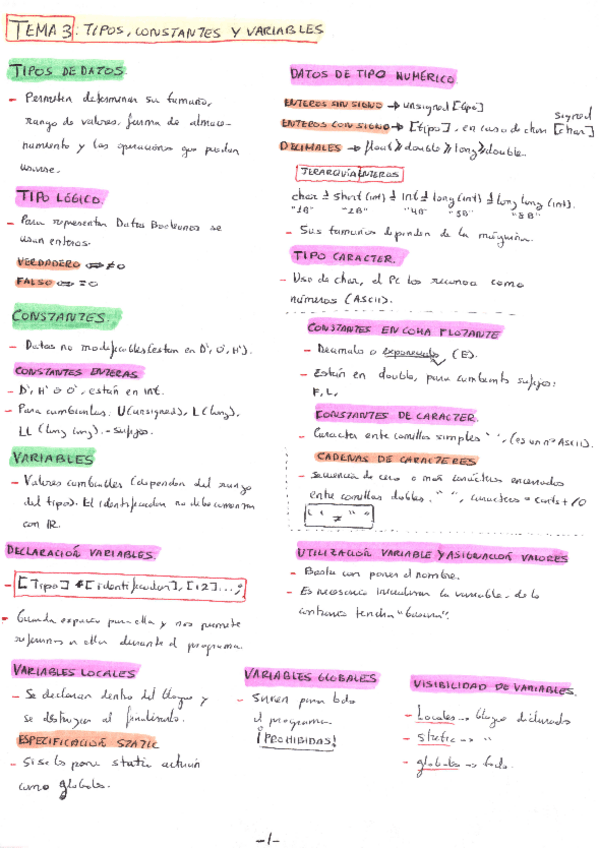 TEMA 3: TIPOS, CONSTANTES Y VARIABLES
TIPOS DE DATOS.
- Permiten determinar su tamaño,
rango de valores, forma de almace-
namiento y las operaciones que puedan
usarse.
TIPO LÓGICO.
- Para representar Datos Booleanos se
usan enteros.
VERDADERO ⇔ ≠0
FALSO ⇔ =0
DATOS DE TIPO NUMÉRICO
ENTEROS SIN SIGNO → unsigned [tipo]
signed
ENTEROS CON SIGNO → [tipo], en caso de char [char]
DECIMALES → float ≫ double ≫ long ≫ double.
JERARQUÍA ENTEROS
char ≤ short (int) ≤ int ≤ long (int) ≤ long long (int).
"1B" "2B" "4B" "8B" "8B"
- Sus tamaños dependen de la máquina.
TIPO CARACTER.
- Uso de char, el Pc los reconoce como
números (ASCII).
CONSTANTES.
- Datos no modificables (están en D', O', H').
CONSTANTES ENTERAS
- D', H' o O', están en int.
- Para cambiarlas: U (unsigned), L (long),
LL (long long). - sufijos.
VARIABLES
- Valores cambiables (dependen del rango
del tipo). El identificador no debe comenzar
con
CONSTANTES EN COMA FLOTANTE
- Decimales o exponenciales (E).
- Están en double, para cambiarlo sufijos:
F, L,
CONSTANTES DE CARACTER.
- Caracter entre comillas simples ' ', (es un nº ASCII).
CADENAS DE CARACTERES
- Secuencia de cero o más caracteres encerrados
entre comillas dobles. " ", caracteres = cuits + /0
' ' ≠ " "
DECLARACIÓN VARIABLES.
- [Tipo] [identificador], [i2]...;
- Guarda espacio para ella y nos permite
referirnos a ella durante el programa.
UTILIZACIÓN VARIABLE Y ASIGNACIÓN VALORES
- Basta con poner el nombre.
- Es necesario inicializar la variable, de lo
contrario tendrán "basura".
VARIABLES LOCALES
- Se declaran dentro del bloque y
se destruyen al finalizarlo.
ESPECIFICACIÓN STATIC
- Si se lo pone static actúan
como globales.
VARIABLES GLOBALES
- Sirven para todo
el programa.
¡PROHIBIDAS!
VISIBILIDAD DE VARIABLES.
- Locales → bloque declarado
- Static → "
- globales → todo.
-1-